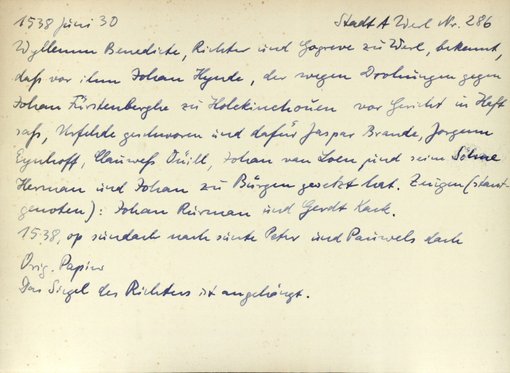 1538 Juni 30 Stadt A Werl Nr. 286
Wyllemm Benedicte, Richter und Gogreve zu Werl, bekennt,
daß vor ihm Johan Hynde, der wegen Drohungen gegen
Johan Fürstenberghe zu vor Gericht in Haft
saß, Urfehde geschworen und dafür Jaspar Brande, Jorgenn
Eynhoff, Clauweß Duill, Johan van Loen und seine Söhne
Herman und Johan zu Bürgen gesetzt hat. Zeugen (Stant-
genoten): Johan Rurman und Gerdt Kack.
1538, op sundach nach sunte Peter und Pauwels dach
Orig. Papier
Das Siegel des Richters ist angehängt.